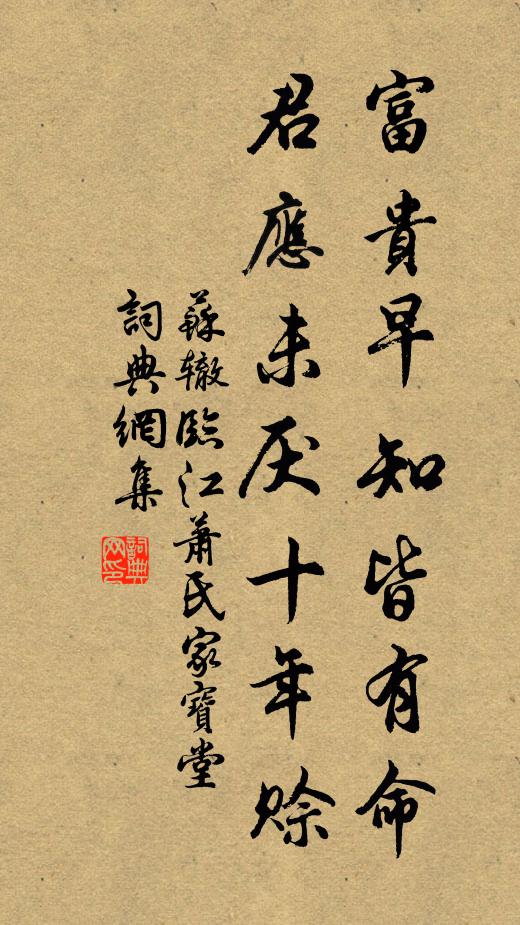 富貴早知皆有命
君應未厌十年赊
蘇辙臨江萧氏家寶堂
詞典網集
詞典网印